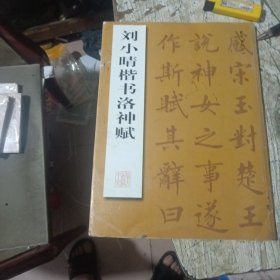 刘小晴楷书洛神赋
蔵宋玉對楚王
說神女之事遂
作斯賦其辭曰